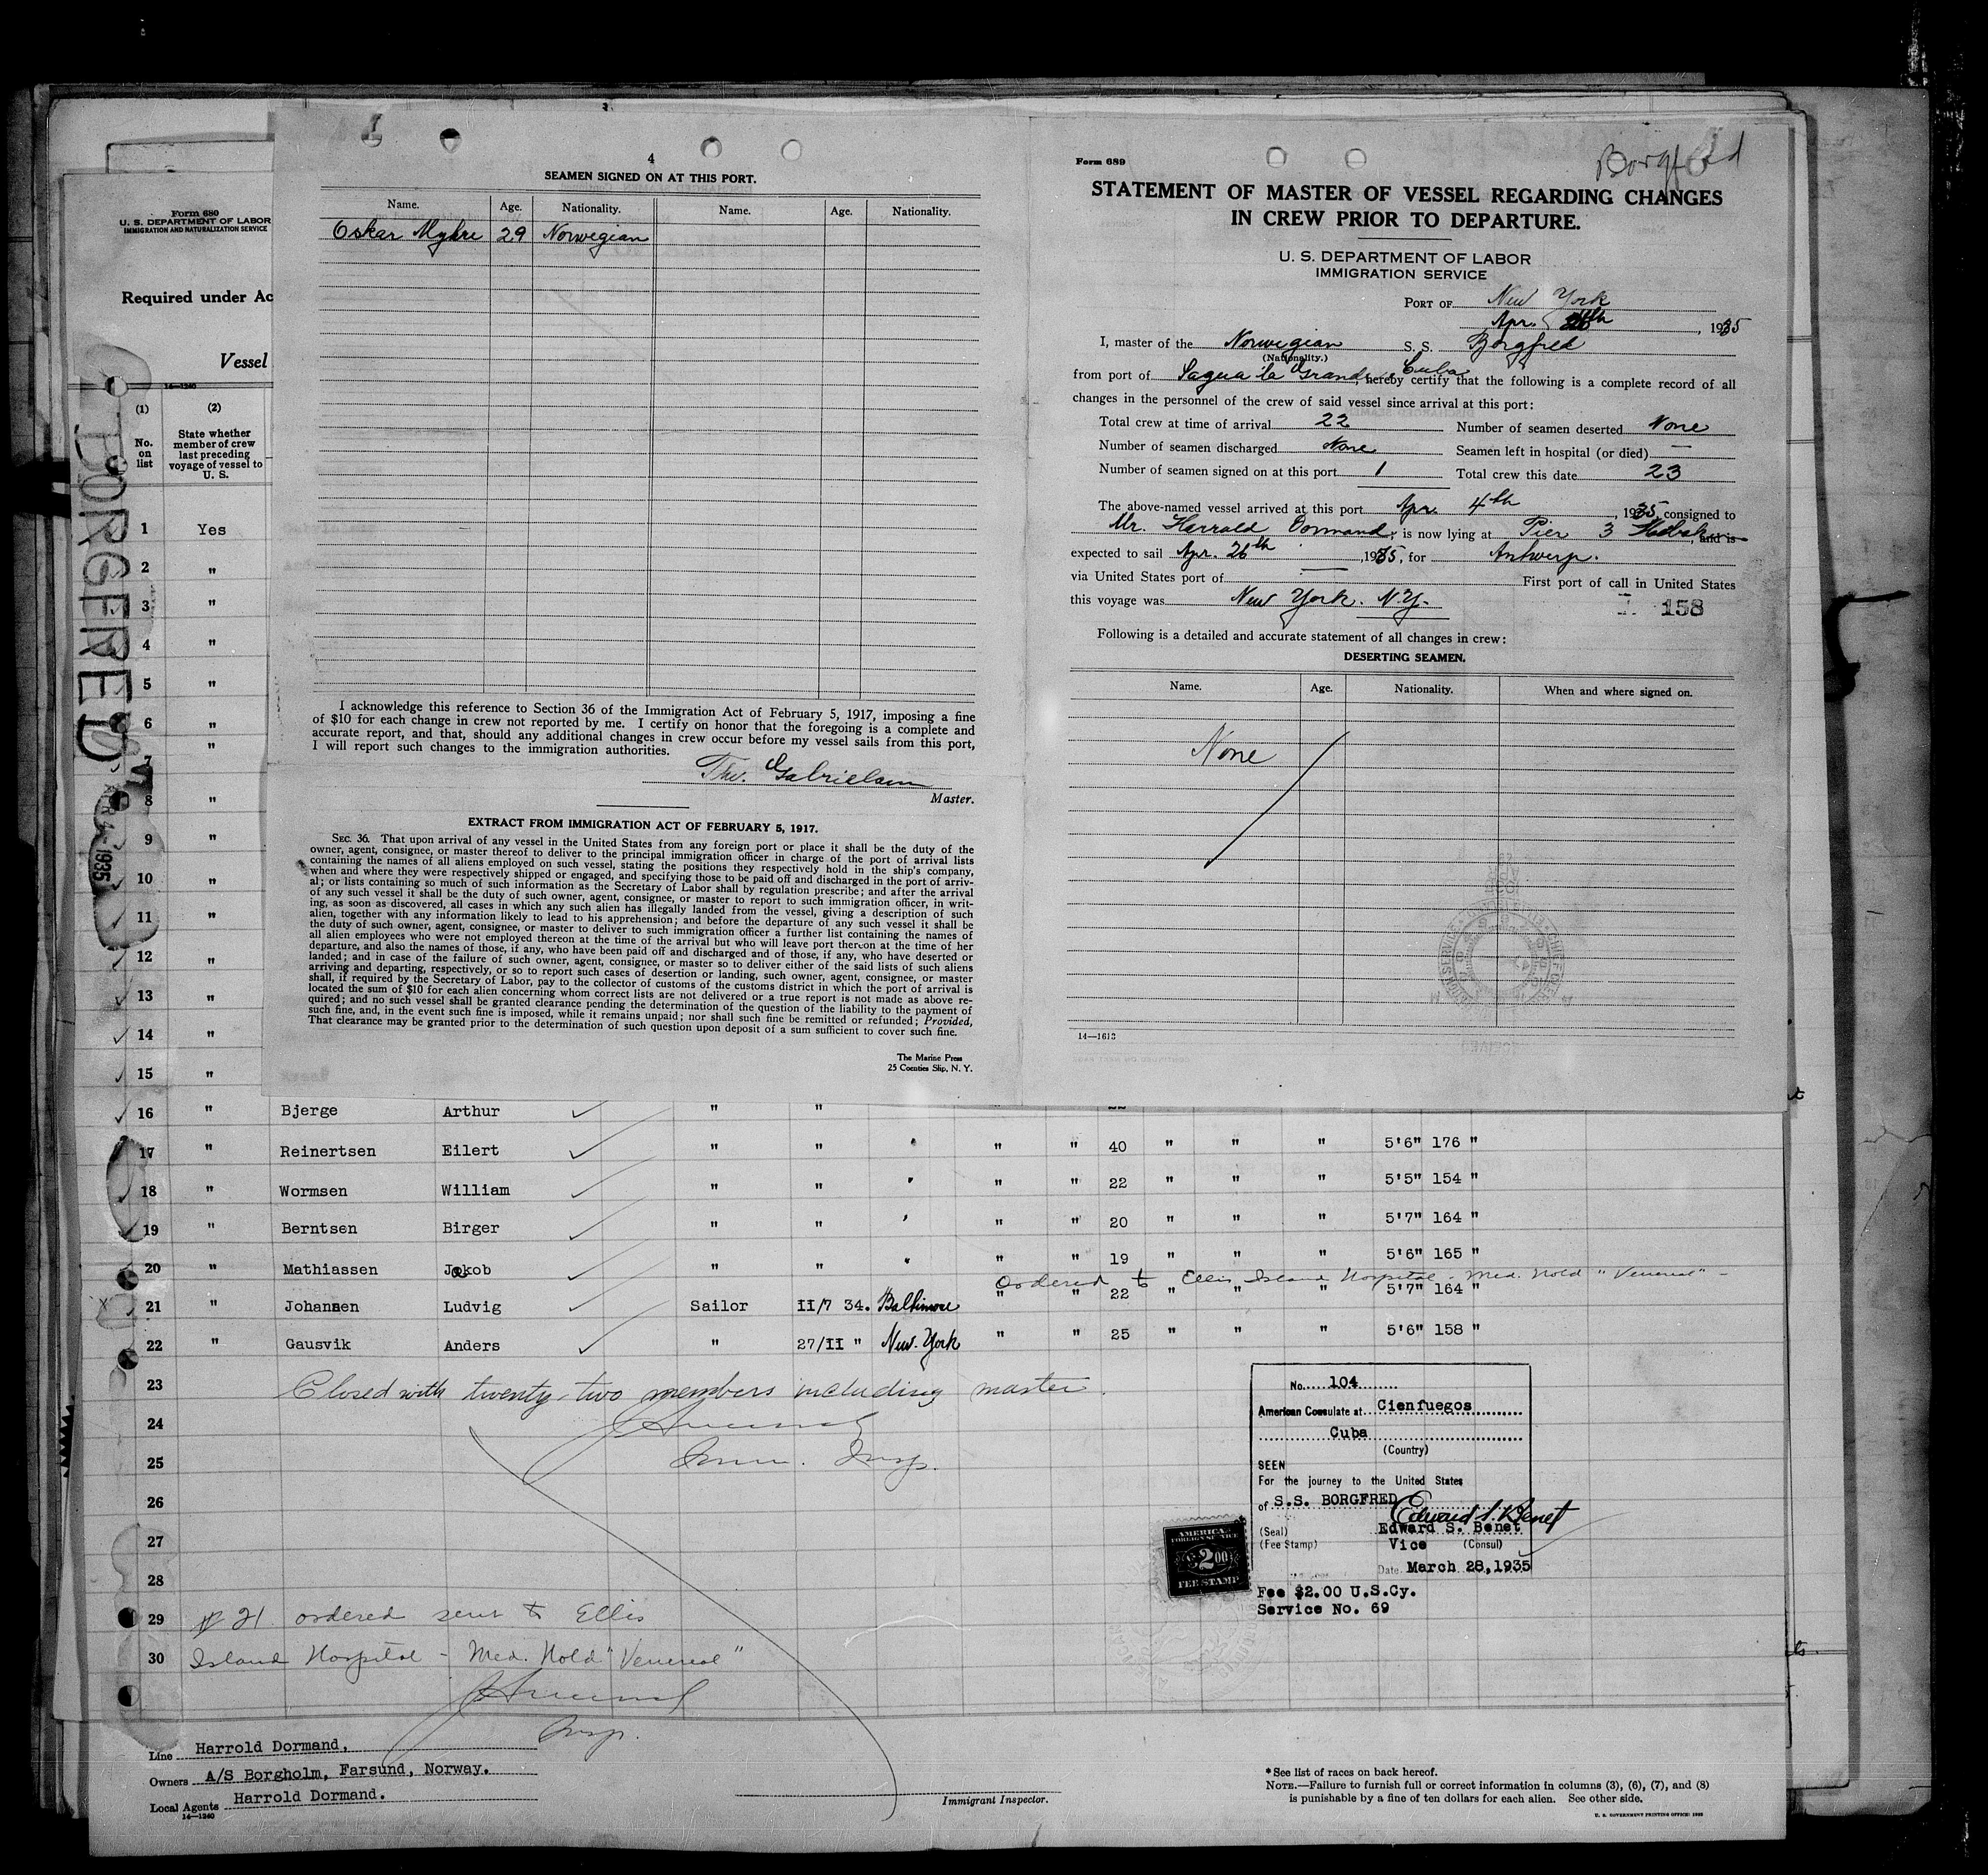 Form 680
U. S. DEPARTMENT OF LABOR
IMMIGRATION AND NATURALIZATION SERVICE
Required under Ac
Vessel
14—1240
(1)
(2)
No.
on
list
State whether
member of crew
last preceding
voyage of vessel to
U. S.
BORGFRED
1935
1 Yes
2 "
3 "
4 "
5 "
6 "
7 "
8 "
9 "
10 "
11 "
12 "
13 "
14 "
15 "
4
SEAMEN SIGNED ON AT THIS PORT.
Name. Age. Nationality. Name. Age. Nationality.
Oskar Myhre 29 Norwegian
I acknowledge this reference to Section 36 of the Immigration Act of February 5, 1917, imposing a fine
of $10 for each change in crew not reported by me. I certify on honor that the foregoing is a complete and
accurate report, and that, should any additional changes in crew occur before my vessel sails from this port,
I will report such changes to the immigration authorities.
Thv. Gabrielsen
Master.
EXTRACT FROM IMMIGRATION ACT OF FEBRUARY 5, 1917.
SEC. 36. That upon arrival of any vessel in the United States from any foreign port or place it shall be the duty of the
owner, agent, consignee, or master thereof to deliver to the principal immigration officer in charge of the port of arrival lists
containing the names of all aliens employed on such vessel, stating the positions they respectively hold in the ship's company,
when and where they were respectively shipped or engaged, and specifying those to be paid off and discharged in the port of arriv-
al; or lists containing so much of such information as the Secretary of Labor shall by regulation prescribe; and after the arrival
of any such vessel it shall be the duty of such owner, agent, consignee, or master to report to such immigration officer, in writ-
ing, as soon as discovered, all cases in which any such alien has illegally landed from the vessel, giving a description of such
alien, together with any information likely to lead to his apprehension; and before the departure of any such vessel it shall be
the duty of such owner, agent, consignee, or master to deliver to such immigration officer a further list containing the names of
all alien employees who were not employed thereon at the time of the arrival but who will leave port thereon at the time of her
departure, and also the names of those, if any, who have been paid off and discharged and of those, if any, who have deserted or
landed; and in case of the failure of such owner, agent, consignee, or master so to deliver either of the said lists of such aliens
arriving and departing, respectively, or so to report such cases of desertion or landing, such owner, agent, consignee, or master
shall, if required by the Secretary of Labor, pay to the collector of customs of the customs district in which the port of arrival is
located the sum of $10 for each alien concerning whom correct lists are not delivered or a true report is not made as above re-
quired; and no such vessel shall be granted clearance pending the determination of the question of the liability to the payment of
such fine, and, in the event such fine is imposed, while it remains unpaid; nor shall such fine be remitted or refunded; Provided,
That clearance may be granted prior to the determination of such question upon deposit of a sum sufficient to cover such fine.
The Marine Press
25 Coenties Slip, N. Y.
Form 689
Borgfred
STATEMENT OF MASTER OF VESSEL REGARDING CHANGES
IN CREW PRIOR TO DEPARTURE.
U. S. DEPARTMENT OF LABOR
IMMIGRATION SERVICE
PORT OF New York
Apr. 26th, 1935
I, master of the Norwegian S. S. Borgfred
(Nationality.)
from port of Sagua la Grande, Cuba hereby certify that the following is a complete record of all
changes in the personnel of the crew of said vessel since arrival at this port:
Total crew at time of arrival 22 Number of seamen deserted None
Number of seamen discharged None Seamen left in hospital (or died) —
Number of seamen signed on at this port 1 Total crew this date 23
The above-named vessel arrived at this port Apr. 4th, 1935, consigned to
Mr. Harrald Dormand, is now lying at Pier 3 Hoboken, and is
expected to sail Apr. 26th, 1935, for Antwerp.
via United States port of — First port of call in United States
this voyage was New York. N.Y.
158
Following is a detailed and accurate statement of all changes in crew:
DESERTING SEAMEN.
Name. Age. Nationality. When and where signed on.
None
14—1613
16 " Bjerge Arthur " "
17 " Reinertsen Eilert " " " " " 40 " " " 5'6" 176 "
18 " Wormsen William " " " " " 22 " " " 5'5" 154 "
19 " Berntsen Birger " " " " " 20 " " " 5'7" 164 "
20 " Mathiassen Jakob " " " " " 19 " " " 5'6" 165 "
Ordered to Ellis Island Hospital - Med. Hold "Venereal" -
21 " Johansen Ludvig Sailor II/7 34. Baltimore " " 22 " " " 5'7" 164 "
22 " Gausvik Anders " 27/II " New. York " " 25 " " " 5'6" 158 "
23 Closed with twenty-two members including master.
24
25 Imm. Insp.
26
27
28
29 # 21 ordered sent to Ellis
30 Island Hospital - Med. Hold "Venereal"
Insp.
No. 104
American Consulate at Cienfuegos
Cuba
(Country)
SEEN
For the journey to the United States
of S.S. BORGFRED
Edward S. Benet
(Seal) Edward S. Benet
(Fee Stamp) Vice (Consul)
Date March 28, 1935
Fee $2.00 U.S.Cy.
Service No. 69
AMERICAN
FOREIGN SERVICE
$2.00
FEE STAMP
Line Harrold Dormand,
Owners A/S Borgholm, Farsund, Norway.
Local Agents Harrold Dormand.
14—1240
Immigrant Inspector.
* See list of races on back hereof.
NOTE.—Failure to furnish full or correct information in columns (3), (6), (7), and (8)
is punishable by a fine of ten dollars for each alien. See other side.
U. S. GOVERNMENT PRINTING OFFICE: 1932